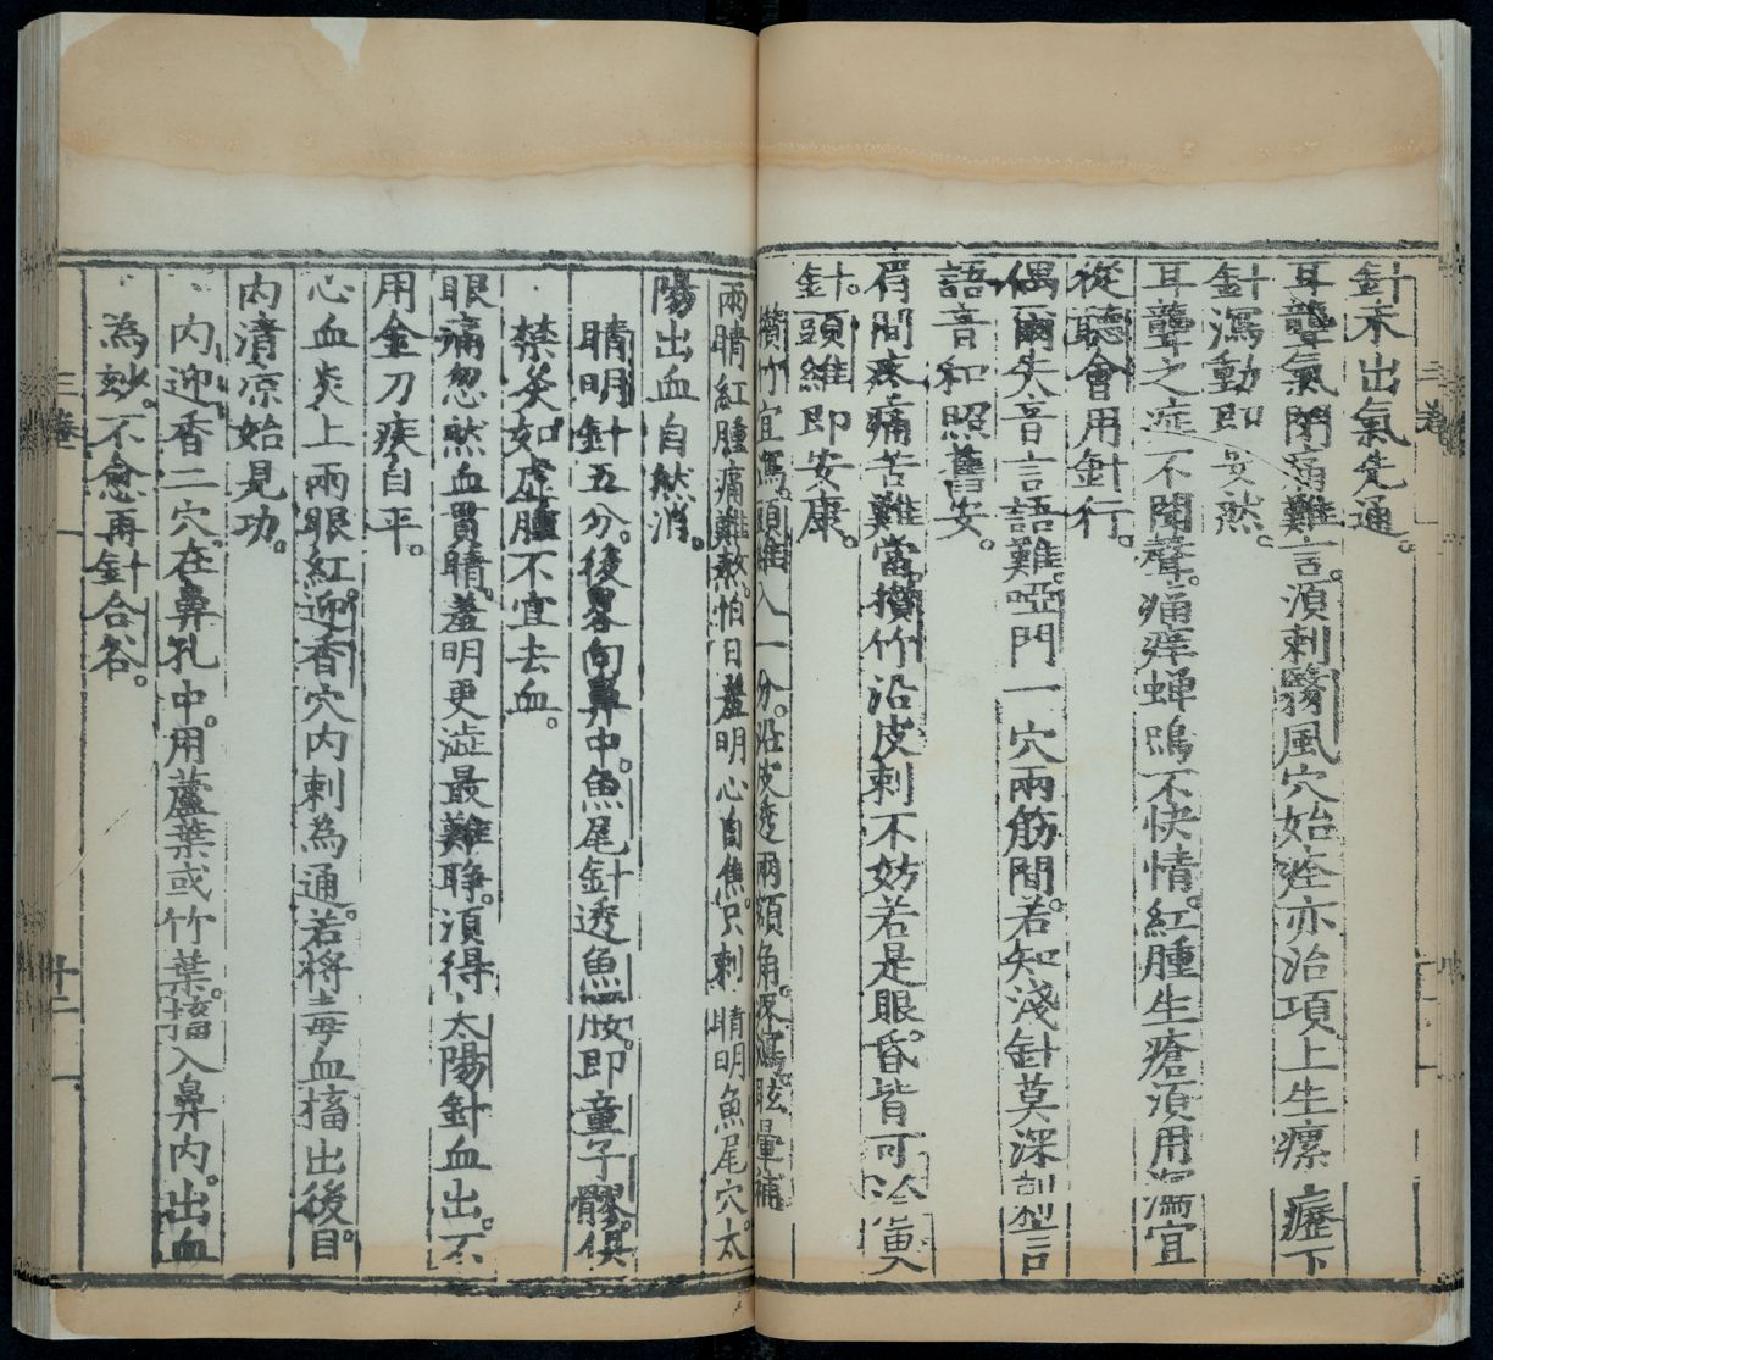 針未出氣先通。
耳聾氣閉痛難言。湏刺翳風穴始痊亦治項上生瘰癧下
針瀉動即安然。
耳聾之症不聞聲。痛痒蟬鳴不快情。紅腫生瘡湏用瀉宜
從聽會用針行。
偶爾失音言語難。啞門一穴兩筋間。若知淺針莫深刺言
語音和照舊安。
眉間疼痛苦難當。攢竹沿皮刺不妨若是眼昏皆可治更
針。頭維即安康。
攢竹宜瀉。頭維入一分。沿皮透兩額角。深瀉。眩暈補
兩睛紅腫痛難熬。怕日羞明心自焦。只刺睛明魚尾穴。太
陽出血自然消。
睛明針五分。後畧向鼻中。魚尾針透魚腰。即童子髎。俱
禁灸如虛腫不宜去血。
眼痛忽然血貫睛。羞明更澁最難睜。湏得太陽針血出。不
用金刀疾自平。
心血炎上兩眼紅。迎香穴内刺為通。若將毒血搐出後目。
内清凉始見功。
内迎香二穴。在鼻孔中。用蘆葉或竹葉。搐入鼻内。出血
為妙。不愈再針合谷。
三卷
十二